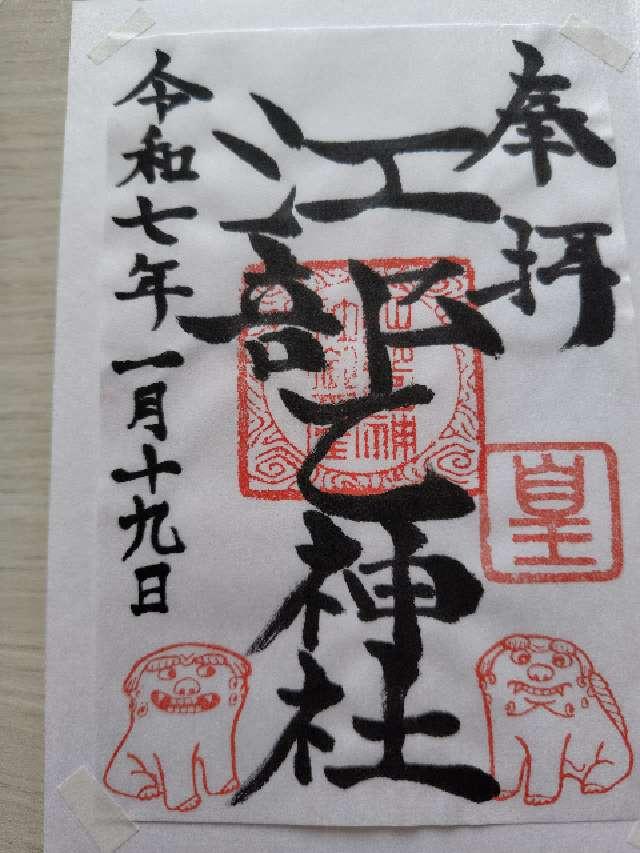 奉拝
皇
江部乙神社
令和七年一月十九日